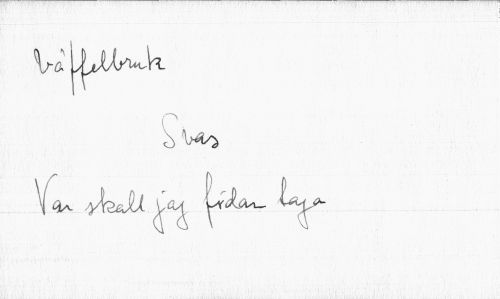 Väffelbruk
Svas
Var skall jag fidan taga